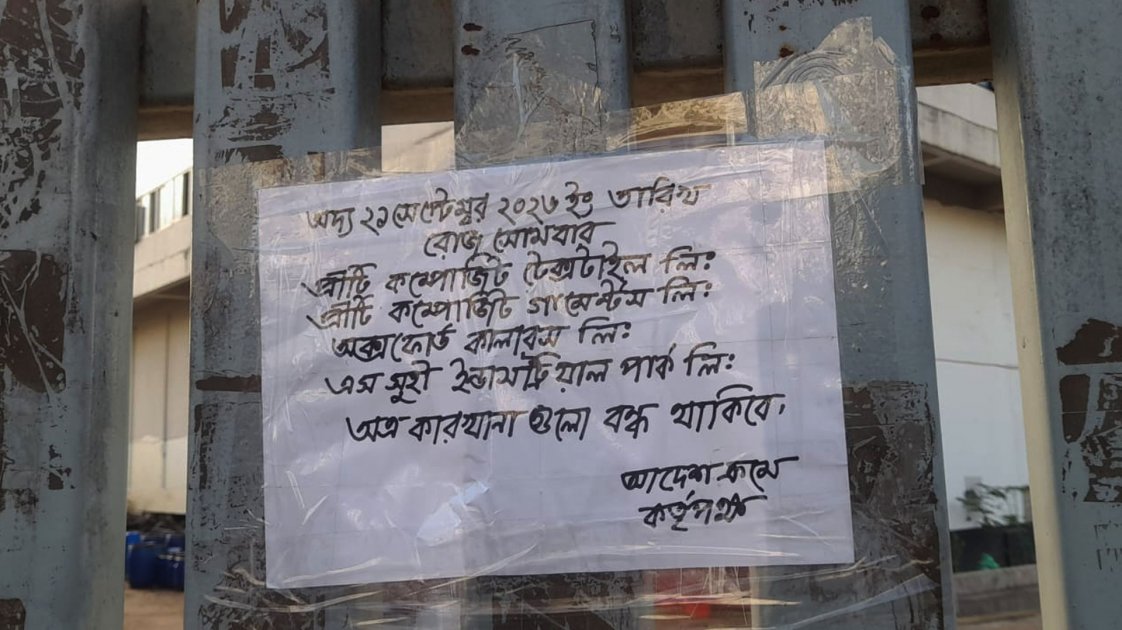 অদ্য ২১ সেপ্টেম্বর ২০২৬ ইং তারিখ
রোজ সোমবার
প্রীটি কম্পোজিট টেক্সটাইল লি:
প্রীটি কম্পোজিট গার্মেন্টস লি:
অক্সফোর্ড কালারস লি:
এস সুহী ইন্ডাসট্রিয়াল পার্ক লি:
অত্র কারখানা গুলো বন্ধ থাকিবে।
আদেশ ক্রমে
কর্তৃপক্ষ